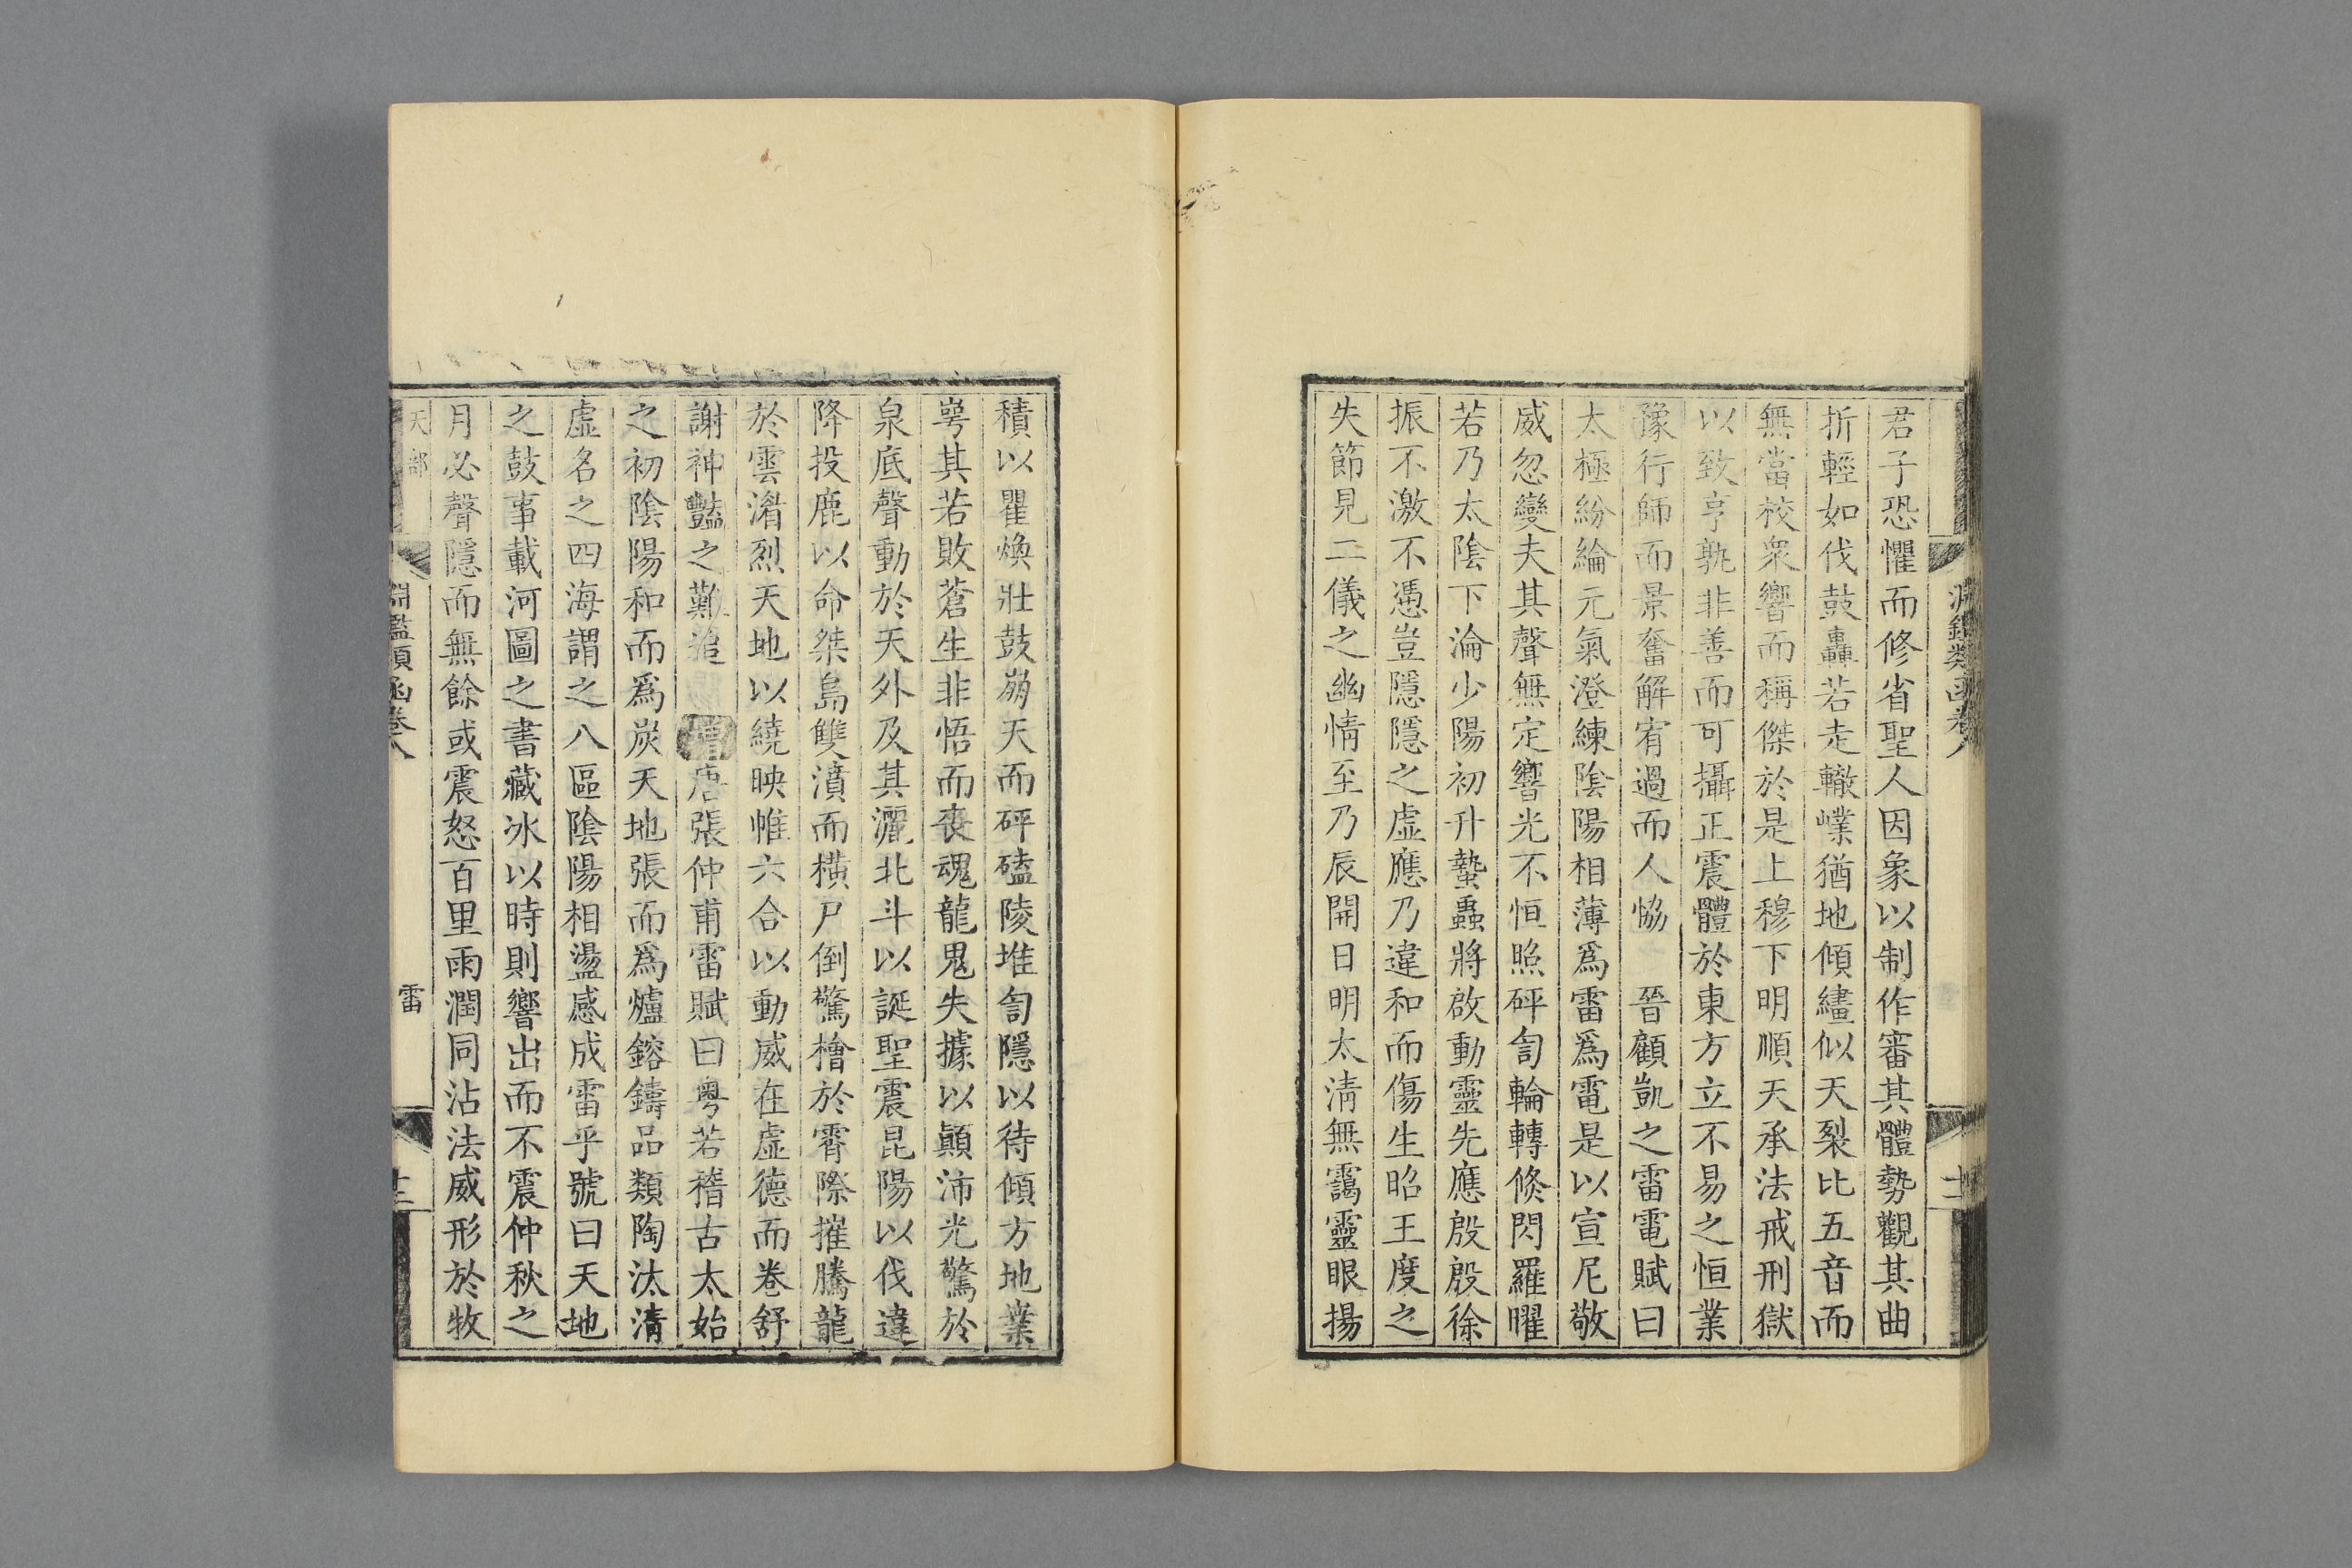 君子恐懼而修省聖人因象以制作審其體勢觀其曲
折輕如伐鼓轟若走轍嶫猶地傾繣似天裂比五音而
無當校衆響而稱傑於是上穆下明順天承法戒刑獄
以致亨孰非善而可攝正震體於東方立不易之恒業
豫行師而景奮解宥過而人恊　晉顧凱之雷電賦曰
太極紛綸元氣澄練陰陽相薄爲雷爲電是以宣尼敬
威忽變夫其聲無定響光不恒照砰訇輪轉倏閃羅曜
若乃太陰下淪少陽初升蟄蟲將啟動靈先應殷殷徐
振不激不憑豈隱隱之虛應乃違和而傷生昭王度之
失節見二儀之幽情至乃辰開日明太清無靄靈眼揚
積以瞿煥壯鼓崩天而砰磕陵堆訇隱以待傾方地業
崿其若敗蒼生非悟而喪魂龍鬼失據以顚沛光驚於
泉底聲動於天外及其灑北斗以誕聖震昆陽以伐違
降投鹿以命桀島雙潰而橫尸倒驚檜於霄際摧騰龍
於雲渚烈天地以繞映惟六合以動威在虛德而卷舒
謝神豔之難追增唐張仲甫雷賦曰粵若稽古太始
之初陰陽和而爲炭天地張而爲爐鎔鑄品類陶汰清
虛名之四海謂之八區陰陽相盪感成雷乎號曰天地
之鼓事載河圖之書藏冰以時則響出而不震仲秋之
月必聲隱而無餘或震怒百里雨潤同沾法威形於牧
天部
淵鑑類函卷八
雷
十二